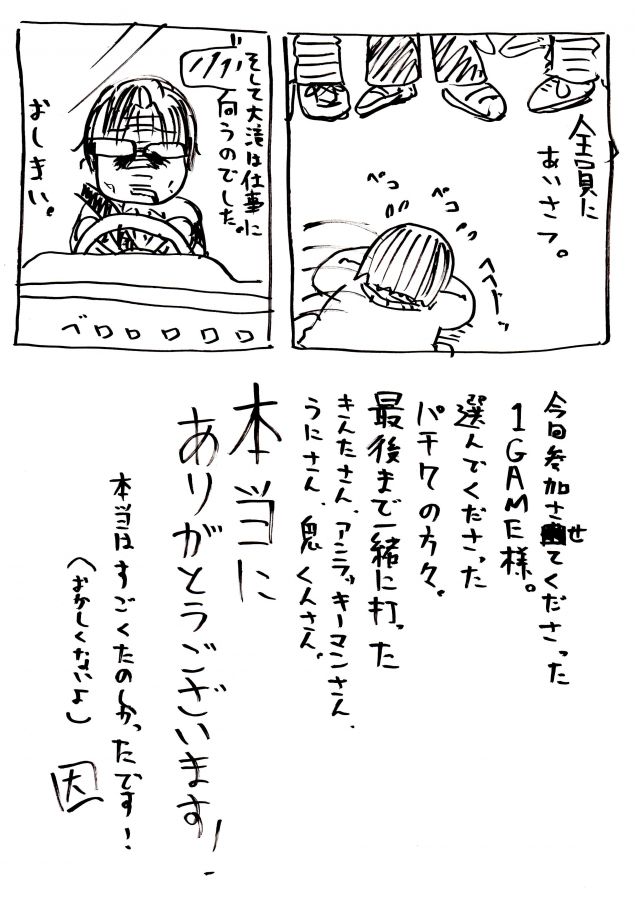 全員に
あいさつ。
ペコ
ペコ
へへーッ
そして大滝は仕事に
向うのでした。
おしまい。
ベロロロロロ
今回参加させてくださった
1GAME様。
選んでくださった
パチ7の方々。
最後まで一緒に打った
きんたさん、アンラッキーマンさん、
うにさん、鬼くんさん。
本当に
ありがとうございます!
本当はすごくたのしかったです!
(おかしくないよ)